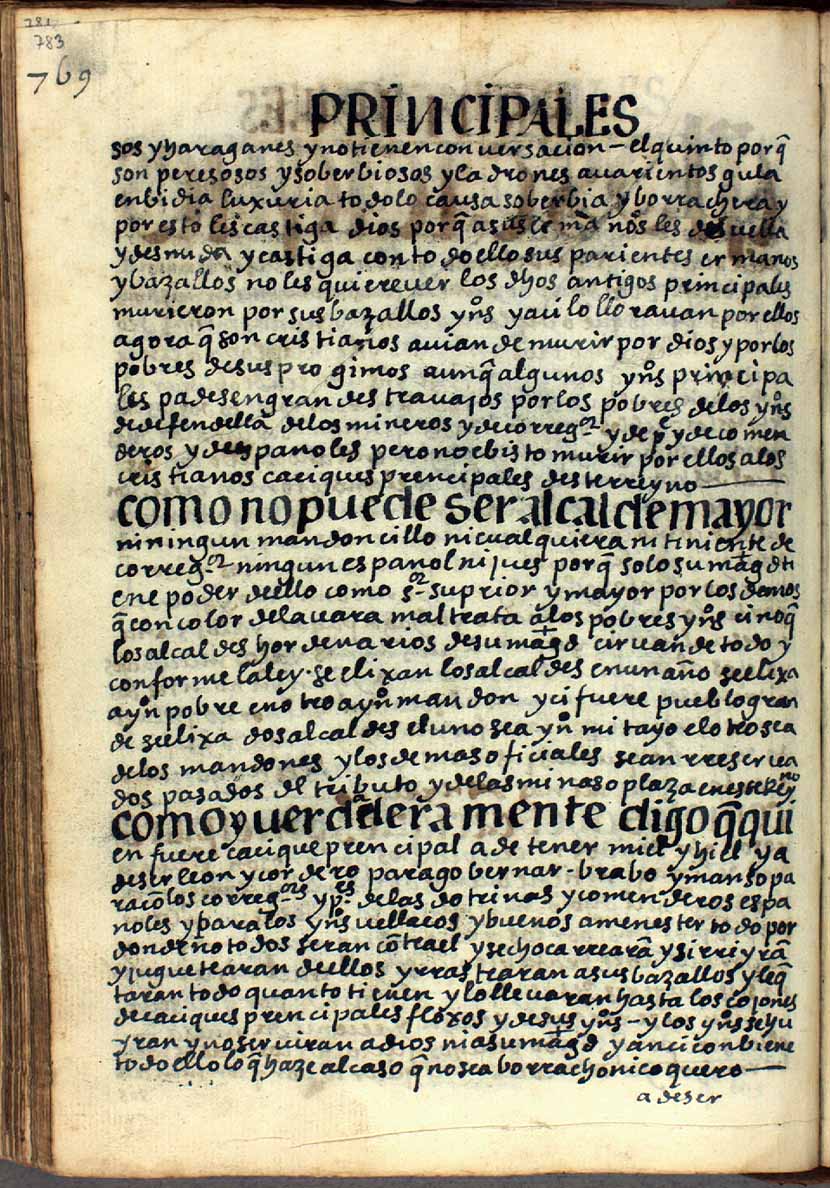 781
783
769
PRINCIPALES
sos y haraganes y no tienen conuersacion – el quinto porq̃
son peresosos y soberbiosos y ladrones auarientos gula
enbidia luxuria todo lo causa soberbia y borrachera y
por esto les castiga dios porq̃ a sus erma nos les desuella
y desnuda y castiga con todo ello sus parientes ermanos
y bazallos no les quiere uer los dhos antigos principales
murieron por sus bazallos yn̊s y aci lo llorauan por ellos
agora q̃ son cristianos auian de murir por dios y por los
pobres de sus progimos aunq̃ algunos yn̊s principa
les padesen grandes trauajos por los pobres de los yn̊s
de defendella de los mineros y de correg.or y de p.e y de comen
deros y despanoles pero no e bisto murir por ellos a los
cristianos caciques prencipales deste rreyno —
como no puede ser alcalde mayor
ni ningun mandoncillo ni cualquiera ni tiniente de
correg.or ningun espanol ni jues porq̃ solo su mag̃d ti
ene poder de ello como s.or suprior y mayor por los demos
q̃ con color de la uara maltrata a los pobres yn̊s cino q̃
los alcaldes hordenarios de su mag̃d ciruan de todo y
conforme la ley · se elixan los alcaldes en un año se elixa
a yn̊ pobre en otro a yn̊ mandon y ci fuere pueblo gran
de se elixa dos alcaldes el uno sea yn̊ mitayo el otro sea
de los mandones y los demas oficiales sean rreserua
dos pasados del tributo y de las minas o plaza en este rrey no
como y uerdaderamente digo q̃ qui
en fuere cacique prencipal a de tener miel y hiel y a
de ser leon y cordero para gobernar – brabo y manso pa
ra cõ los correg.ores y p.es de las dotrinas y comenderos espa
noles y para los yn̊s uellacos y buenos a menester todo por
donde no todos seran cõtra el y se chocarrearã y si rriyrã
y juguetearan de ellos y rrastrearan a sus bazallos y le q̃
taran todo quanto tienen y lo lleuaran hasta los cojones
de caciques prencipales floxos y de sus yn̊s – y los yn̊s se hu
yran y no seruiran a dios ni a su mag̃d y anci conbiene
todo ello lo q̃ haze al caso q̃ no sea borracho ni coquero —
a de ser